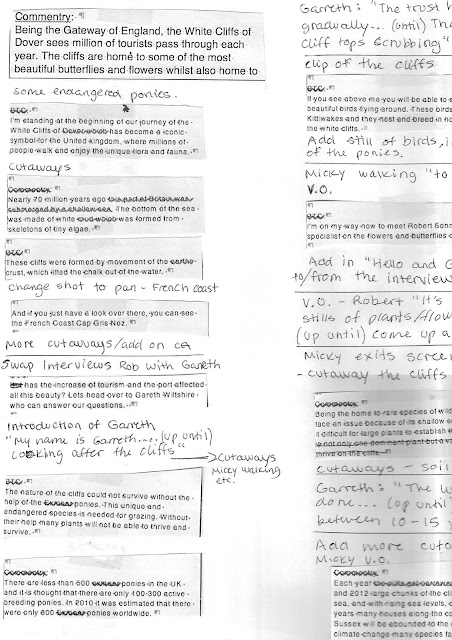 Commentry:
Being the Gateway of England, the White Cliffs of
Dover sees million of tourists pass through each
year. The cliffs are home to some of the most
beautiful butterflies and flowers whilst also home to
some endangered ponies.
PTC:
I'm standing at the beginning of our journey of the
White Cliffs of Dover which has become a iconic
symbol for the United kingdom, where millions of
people walk and enjoy the unique flora and fauna.
Cutaways
Commentry:
Nearly 70 million years ago
The bottom of the sea
was made of white was formed from
skeletons of tiny algae.
PTC:
These cliffs were formed by movement of the earths
crust, which lifted the chalk out of the water.
change shot to pan - French coast
And if you just have a look over there, you can see
the French Coast Cap Gris Nez.
More cutaways/add on CA
Swap Interviews Rob with Gareth
has the increase of tourism and the port affected
all this beauty? Lets head over to Gareth Wiltshire
who can answer our questions...
Introduction of Gareth
"My name is Gareth.... (up until)
Looking after the cliffs"
→ Cutaways
Micky walking
etc.
PTC:
The nature of the cliffs could not survive without the
help of the ponies. This unique and
endangered species is needed for grazing. Without
their help many plants will not be able to thrive and
survive.
Commentry:
There are less than 600 ponies in the UK
and it is thought that there are only 100-300 active
breeding ponies. In 2010 it was estimated that there
were only 800 ponies worldwide.
Garreth: "The trust h
gradually... (until) The
Cliff tops Scrubbing"
clip of the cliffs
PTC:
If you see above me you will be able to s
beautiful birds flying around. These birds
Kittiwakes and they nest and breed in ho
the white cliffs.
Add still of birds, i
of the ponies.
Micky walking "to
V.O.
PTC:
I'm on my way now to meet Robert Sonn
specialist on the flowers and butterflies o
Add in "Hello and G
to/from the interview
V.O. - Robert "It's
stills of plants/flow
(up until) come up a
Micky exits scree
- cutaway the cliffs
Commentry:
Being the home to rare species of wild
face an issue because of its shallow so
it difficult for large plants to establish
is not only one dominant plant but a va
thrive on the cliffs.
cutaways - soil
Garreth: "The w
done... (up until
between 10 - 15 y
Add more cuta
Micky V.O.
Commentry:
Each year
and 2012 large chunks of the cl
sea, and with rising sea levels, c
years many houses along the co
Sussex will be ebounded to the
climate change many species fa